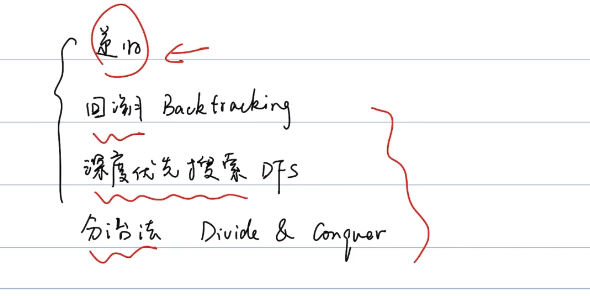 递归
回溯 Backtracking
深度优先搜索 DFS
分治法 Divide & Conquer